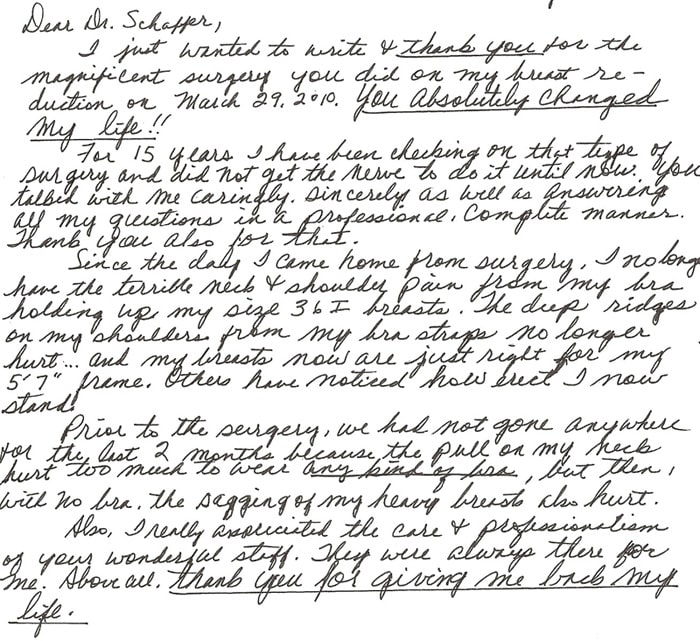 Dear Dr. Schaffer,
I just wanted to write & thank you for the
magnificent surgery you did on my breast re-
duction on March 29, 2010. You Absolutely Changed
My life!!
For 15 years I have been checking on that type of
surgery and did not get the nerve to do it until now. You
talked with me caringly, sincerely as well as answering
all my questions in a professional, complete manner.
Thank you also for that.
Since the day I came home from surgery, I no long
have the terrible neck & shoulder pain from my bra
holding up my size 36I breasts. The deep ridges
on my shoulders from my bra straps no longer
hurt... and my breasts now are just right for my
5'7" frame. Others have noticed how erect I now
stand.
Prior to the surgery, we had not gone anywhere
for the last 2 months because the pull on my neck
hurt too much to wear any kind of bra, but then,
with no bra, the sagging of my heavy breasts also hurt.
Also, I really appreciated the care & professionalism
of your wonderful staff. They were always there for
me. Above all, thank you for giving me back my
life.